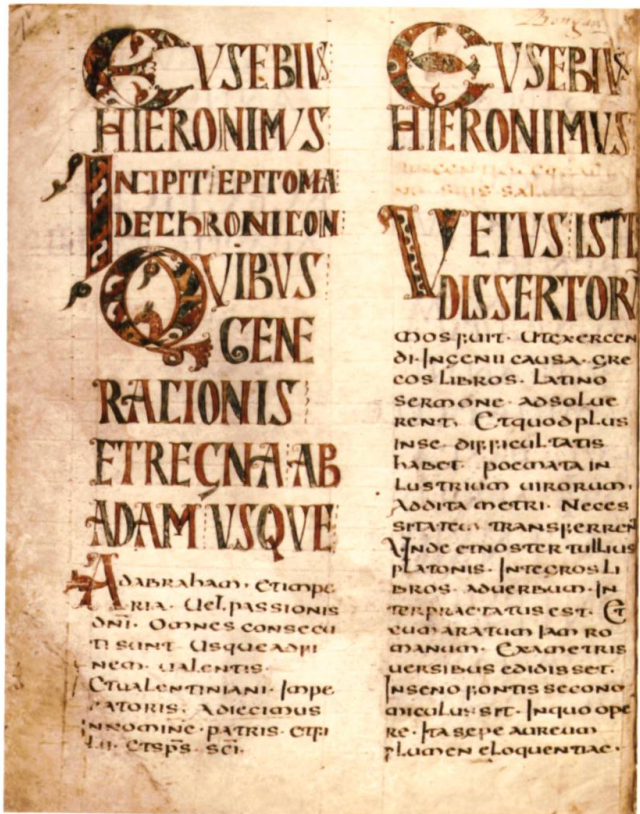 EVSEBIVS
HIERONIMVS
INCIPIT EPITOMA
DE CHRONICON
QVIBVS
GENE
RACIONIS
ET REGNA AB
ADAM VSQVE
Ad abraham · et impe
ria · Uel passionis
dnī · Omnes consecu
ti sunt Usque ad fi
nem · ualentis ·
Et ualentiniani · Impe
ratoris · Adiecimus
in nomine · patris · et fi
lii · Et sp̄s · sc̄i ·
EVSEBIVS
HIERONIMVS
suis salu
VETVS ISTE
DISSERTORV
mos fuit · Ut exercen
di · Ingenii causa · gre
cos libros · Latino
sermone · absolue
rent · Et quod plus
in se · difficultatis
habet · poemata in
lustrium uirorum ·
Addita metri · Neces
sitatem transferren
Unde et noster tullius
platonis · Integros li
bros · ad uerbum · In
terpraetatus est · Et
cum aratum Iam ro
manum · Exametris
uersibus edidisset ·
In seno fontis secono
miculus sit · In quo ope
re · Ita sepe aureum
flumen eloquentiae ·